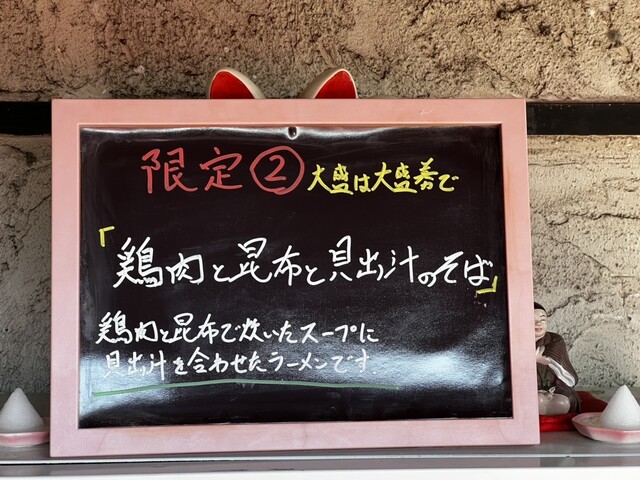 限定② 大盛は大盛券で
「鶏肉と昆布と貝出汁のそば」
鶏肉と昆布で炊いたスープに
貝出汁を合わせたラーメンです.